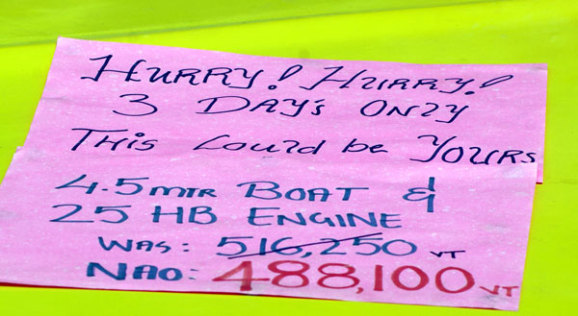 HURRY! HURRY!
3 DAY'S ONLY
THIS Could be YOURS
4.5 MTR BOAT &
25 HB ENGINE
WAS: 516,250 VT
NAO: 488,100 VT